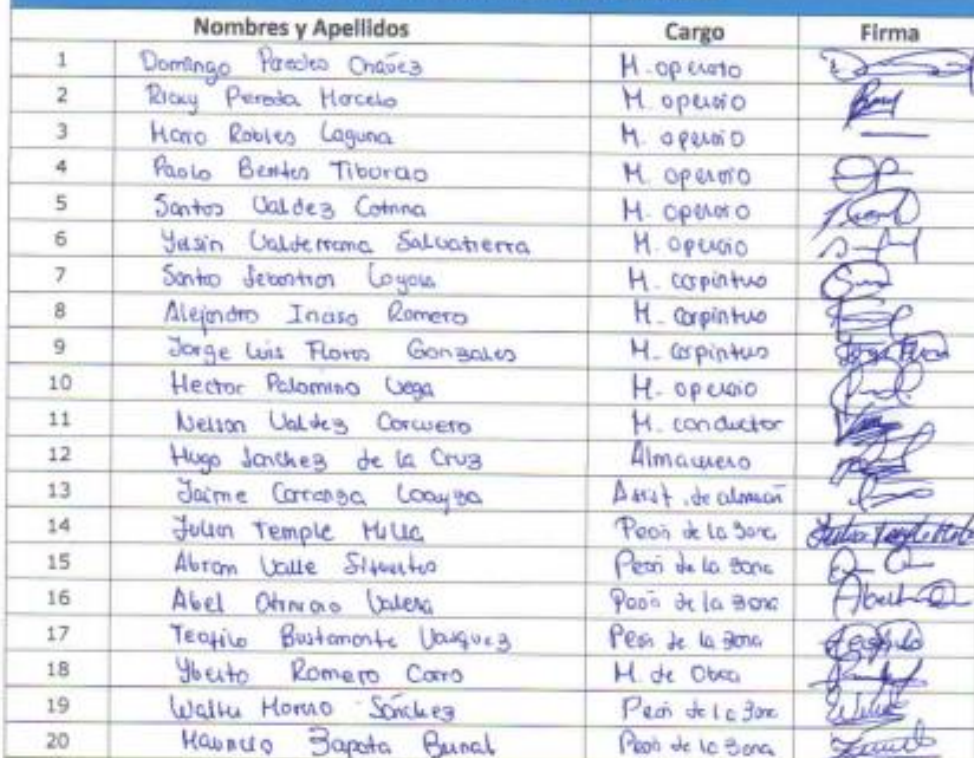 Nombres y Apellidos Cargo Firma
1 Domingo Paredes Chávez M. operario
2 Ricky Pereda Marcelo M. operario
3 Mario Robles Laguna M. operario
4 Paolo Benites Tiburcio M. operario
5 Santos Valdez Cotrina M. operario
6 Yeisin Valderrama Salvatierra M. operario
7 Santos Sebastian Loyola M. carpintero
8 Alejandro Inciso Romero M. carpintero
9 Jorge Luis Flores Gonzales M. carpintero
10 Hector Palomino Vega M. operario
11 Nelson Valdez M. conductor
12 Hugo Sanchez de la Cruz Almacenero
13 Jaime Carranza Loayza Asist. de almacén
14 Julian Temple Milla Peón de la zona
15 Abram Valle Sifuentes Peón de la zona
16 Abel Valera Peón de la zona
17 Teofilo Bustamante Vasquez Peón de la zona
18 Romero Carro M. de Obra
19 Walter Moreno Sánchez Peón de la zona
20 Mauricio Zapata Bernal Peón de la zona